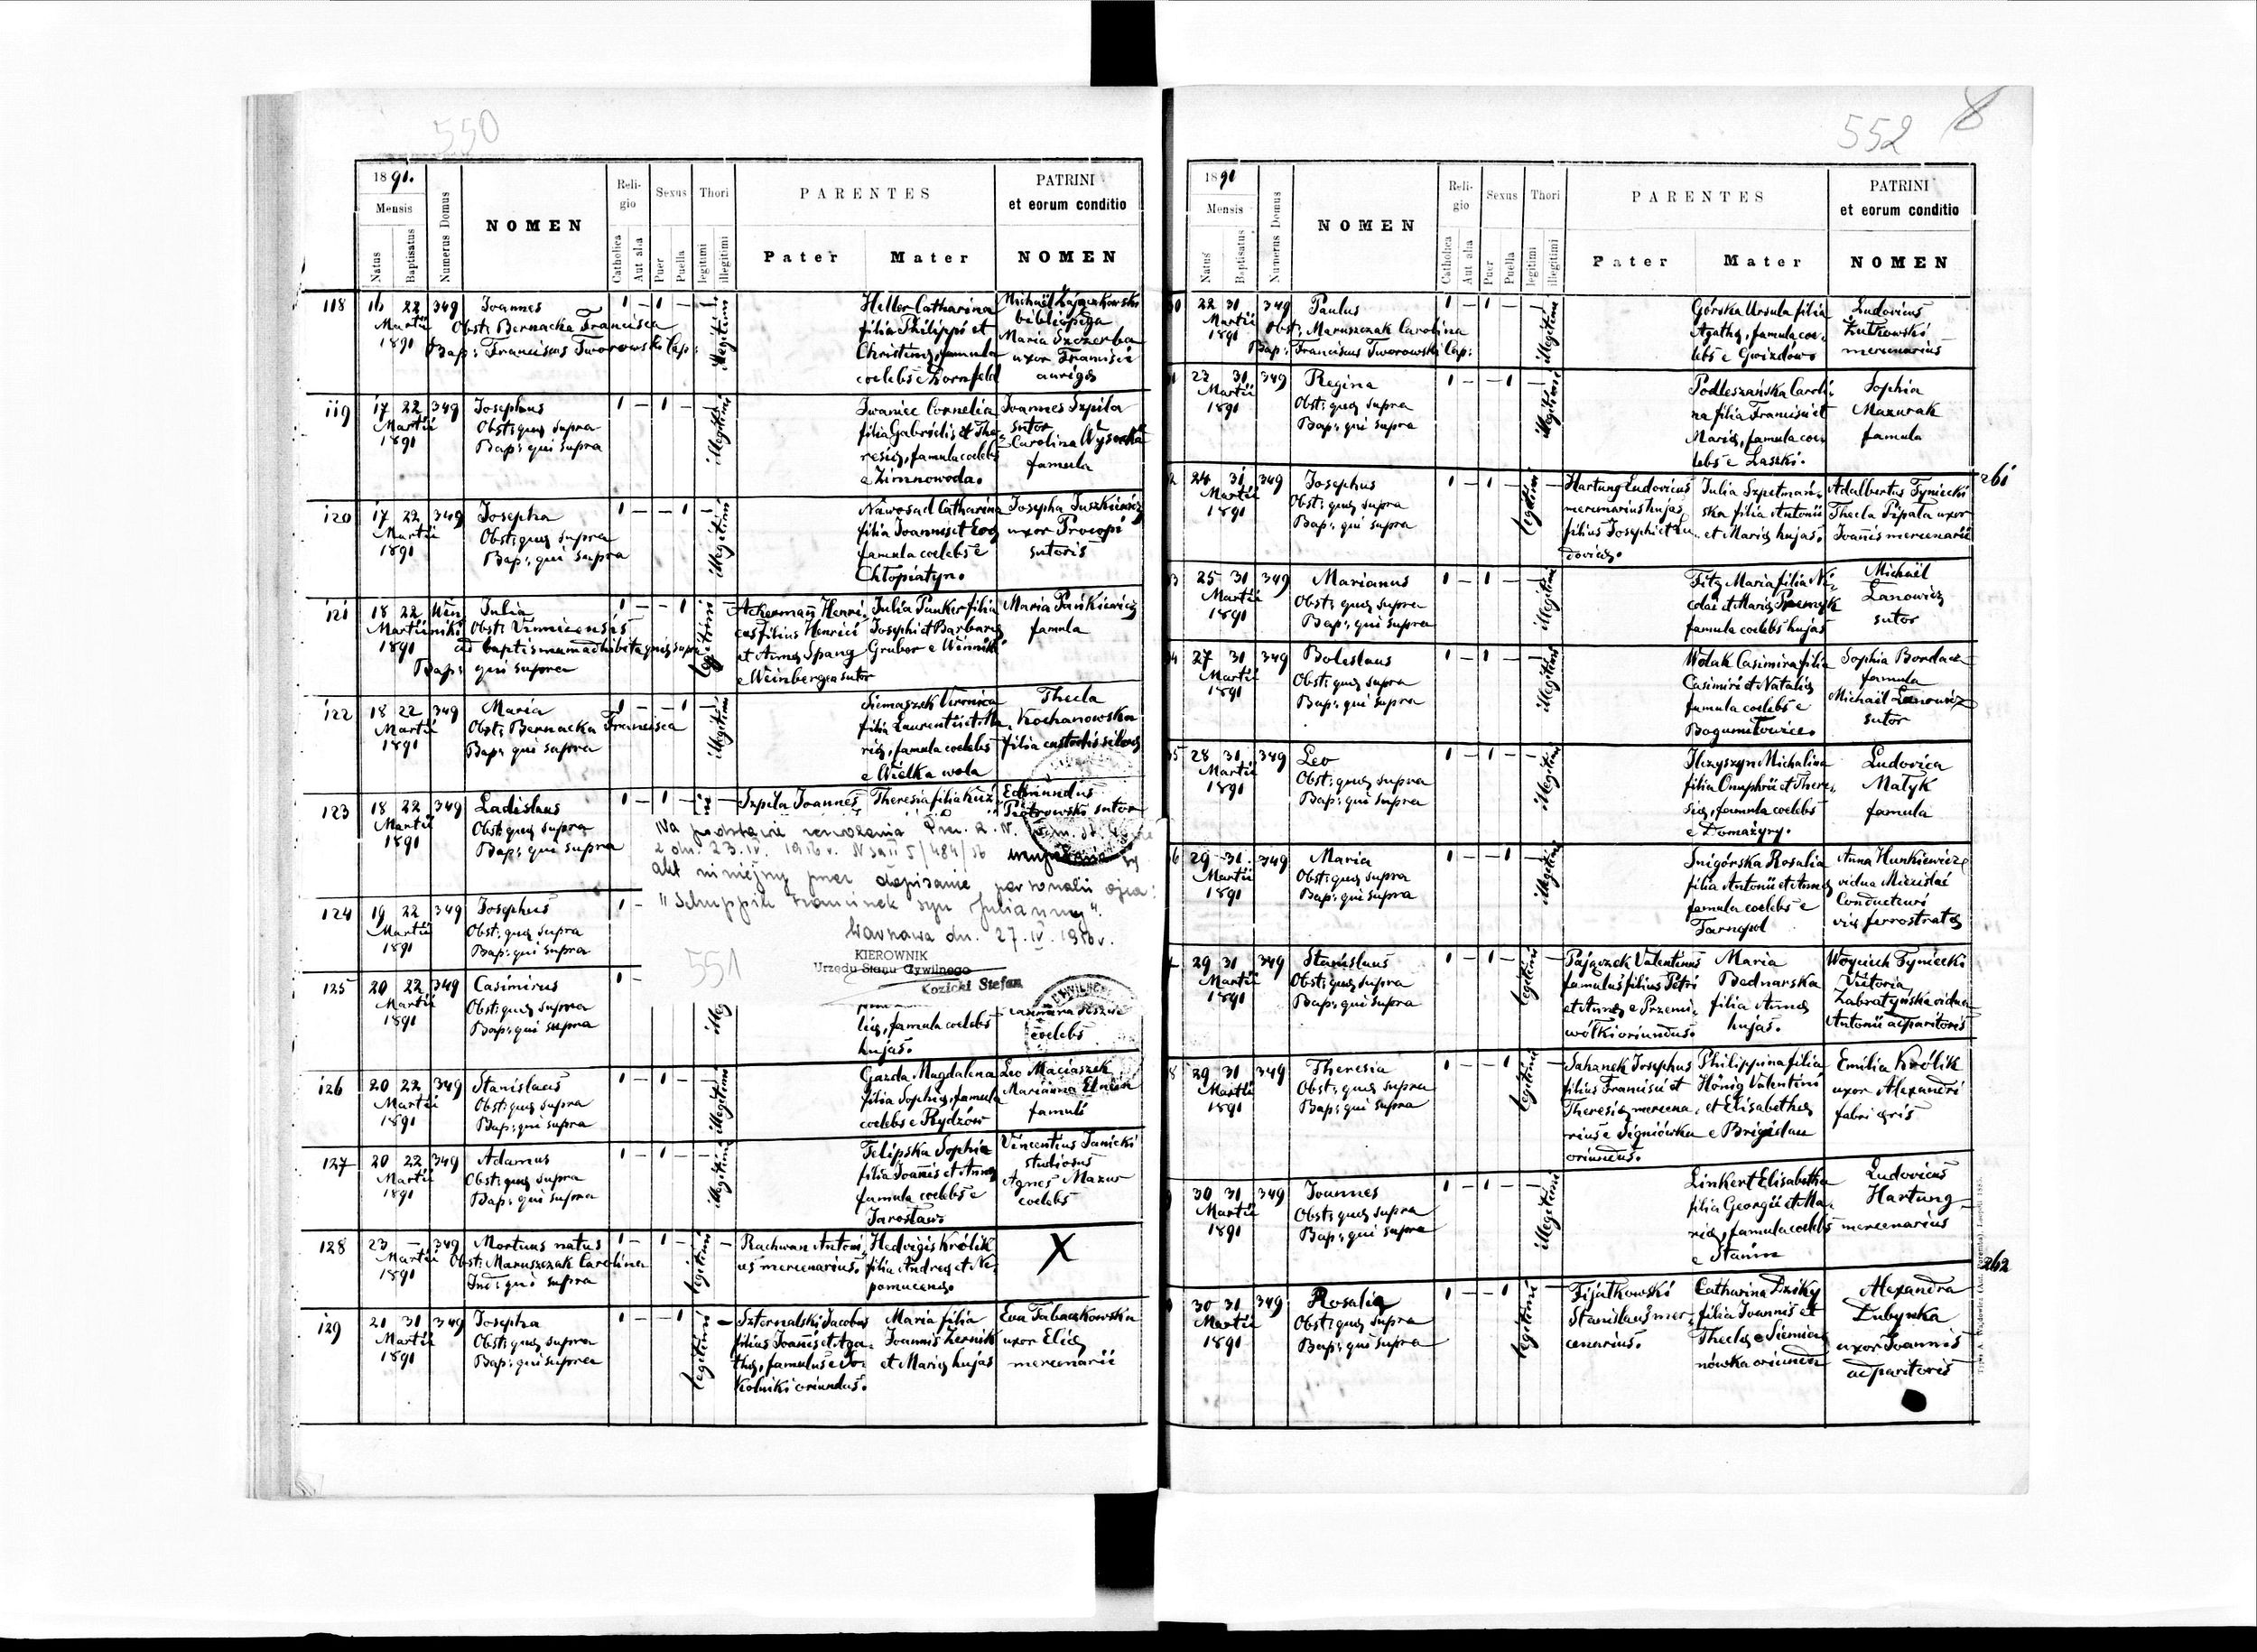 550
1891.
Mensis
Natus
Baptisatus
Numerus Domus
NOMEN
Reli-
gio
Catholica
Aut alia
Sexus
Puer
Puella
Thori
legitimi
illegitimi
PARENTES
Pater
Mater
PATRINI
et eorum conditio
NOMEN
118
16 22 349
Martii
1891
Joannes
Obst: Bernacka Francisca
Bap: Franciscus Tworowski Cap:
1 – 1 –
illegitimi
Heller Catharina
filia Philippi et
Christinę, famula
coelebs e Dornfeld
Michaël Zajączkowski
bibliopega
Maria Szczerba
uxor Francisci
aurigę
119
17 22 349
Martii
1891
Josephus
Obst: quę supra
Bap: qui supra
1 – 1 –
illegitimi
Iwaniec Cornelia
filia Gabriëlis et The-
resię, famula coelebs
e Zimnowoda.
Joannes Szpila
sutor
Carolina Wysocka
famula
120
17 22 349
Martii
1891
Josepha
Obst: quę supra
Bap: qui supra
1 – – 1
illegitimi
Nawosad Catharina
filia Joannis et Evę
famula coelebs e
Chłopiatyn.
Josepha Juszkiewicz
uxor Procopi
sutoris
121
18 22 Win
Martii niki
1891
Julia
Obst: Vinnicensis
ad baptismum adhibita quę supra
Bap: qui supra
1 – – 1
legitimi
Ackermañ Henri-
cus filius Henrici
et Annę Spang
e Weinbergen sutor
Julia Punker filia
Josephi et Barbarę
Gruber e Winniki
Maria Pańkiewicz
famula
122
18 22 349
Martii
1891
Maria
Obst: Bernacka Francisca
Bap: qui supra
1 – – 1
illegitimi
Siemaszek Veronica
filia Laurentii et Ma-
rię, famula coelebs
e Wielka wola
Thecla
Kochanowska
filia custodis silvę
123
18 22 349
Martii
1891
Ladislaus
Obst: quę supra
Bap: qui supra
1 – 1 –
Szpila Joannes
Theresia filia
Edmundus
Piotrowski sutor
Na podstawie zezwolenia Prez. R. N.
z dn. 23. IV. 1956 r. N sa II 5/484/56 uzupełniono
akt niniejszy przez dopisanie personalii ojca:
syn Julianny".
Warszawa dn. 27. IV. 1956 r.
KIEROWNIK
Urzędu Stanu Cywilnego
Kozicki Stefan
551
124
19 22 349
Martii
1891
Josephus
Obst: quę supra
Bap: qui supra
1 –
125
20 22 349
Martii
1891
Casimirus
Obst: quę supra
Bap: qui supra
1 –
illeg
lię, famula coelebs
hujas.
coelebs
126
20 22 349
Martii
1891
Stanislaus
Obst: quę supra
Bap: qui supra
1 – 1 –
illegitimi
Gazda Magdalena
filia Sophię, famula
coelebs e Rydzów
Leo Maciaszek
Marianna
famuli
127
20 22 349
Martii
1891
Adamus
Obst: quę supra
Bap: qui supra
1 – 1 –
illegitimi
Filipska Sophia
filia Joañis et Annę
famula coelebs e
Jarosław
Vincentius Janicki
studiosus
Agnes Mazur
coelebs
128
23 – 349
Martii
1891
Mortuus natus
Obst: Maruszczak Carolina
Ind: qui supra
1 – 1 –
legitimi
Rachwan Antoni-
us mercenarius.
Hedvigis Królik
filia Andreę et Ne-
pomucenę.
X
129
21 31 349
Martii
1891
Josepha
Obst: quę supra
Bap: qui supra
1 – – 1
legitimi
Szternalski Jacobus
filius Joañis et Aga-
thę, famulus e Do-
Kolniki oriundus.
Maria filia
Joannis Zernik
et Marię hujas
Eva Tabaczkowska
uxor Elię
mercenarii
552
8
1891
Mensis
Natus
Baptisatus
Numerus Domus
NOMEN
Reli-
gio
Catholica
Aut alia
Sexus
Puer
Puella
Thori
legitimi
illegitimi
PARENTES
Pater
Mater
PATRINI
et eorum conditio
NOMEN
0
22 31 349
Martii
1891
Paulus
Obst: Maruszczak Carolina
Bap: Franciscus Tworowski Cap:
1 – 1 –
illegitimi
Górska Ursula filia
Agathę, famula coe-
lebs e Gwizdów
Ludovicus
Żutkowski
mercenarius
1
23 31 349
Martii
1891
Regina
Obst: quę supra
Bap: qui supra
1 – – 1
illegitimi
Podleszańska Caroli-
na filia Francisci et
Marię, famula coe-
lebs e Laszki.
Sophia
Mazurak
famula
2
24 31 349
Martii
1891
Josephus
Obst: quę supra
Bap: qui supra
1 – 1 –
legitimi
Hartung Ludovicus
mercenarius hujas
filius Josephi et Lu-
dovicę.
Julia Szpetmań-
ska filia Antonii
et Marię hujas.
Adalbertus Tyniecki
Thecla Pipała uxor
Joañis mercenarii
261
3
25 31 349
Martii
1891
Marianus
Obst: quę supra
Bap: qui supra
1 – 1 –
illegitimi
Fitz Maria filia Ni-
colai et Marię
famula coelebs hujas
Michaël
Lanowicz
sutor
4
27 31 349
Martii
1891
Boleslaus
Obst: quę supra
Bap: qui supra
1 – 1 –
illegitimi
Wolak Casimira filia
Casimiri et Natalię
famula coelebs e
Bogumiłowice.
Sophia Bordacz
famula
Michaël Lanowicz
sutor
5
28 31 349
Martii
1891
Leo
Obst: quę supra
Bap: qui supra
1 – 1 –
illegitimi
Ilczyszyn Michalina
filia Onuphrii et There-
się, famula coelebs
e Domażyry.
Ludovica
Matyk
famula
6
29 31 349
Martii
1891
Maria
Obst: quę supra
Bap: qui supra
1 – – 1
illegitimi
Snigórska Rosalia
filia Antonii et Annę
famula coelebs e
Tarnopol
Anna Hunkiewicz
vidua Micislai
Conducteuri
vię ferrostratę
29 31 349
Martii
1891
Stanislaus
Obst: quę supra
Bap: qui supra
1 – 1 –
legitimi
Pajączek Valentinus
famulus filius Petri
et Annę e Przemi-
wólki oriundus.
Maria
Bednarska
filia Annę
hujas.
Woyciech Tyniecki
Victoria
Zabratyńska vidua
Antonii adparitoris
8
29 31 349
Martii
1891
Theresia
Obst: quę supra
Bap: qui supra
1 – – 1
legitimi
Sahanek Josephus
filius Francisci et
Theresię mercena-
rius e Signiówka
oriundus.
Philippina filia
Hönig Valentini
et Elisabethę
e Brigidau
Emilia Królik
uxor Alexandri
fabri ęris
30 31 349
Martii
1891
Joannes
Obst: quę supra
Bap: qui supra
1 – 1 –
illegitimi
Linkert Elisabetha
filia Georgii et Ma-
rię, famula coelebs
e Stanin
Ludovicus
Hartung
mercenarius
262
30 31 349
Martii
1891
Rosalia
Obst: quę supra
Bap: qui supra
1 – – 1
legitimi
Fijałkowski
Stanislaus mer-
cenarius.
Catharina Dziky
filia Joannis et
Theclę e Siemia-
nówka oriunda
Alexandra
Dubynka
uxor Joannis
adparitoris